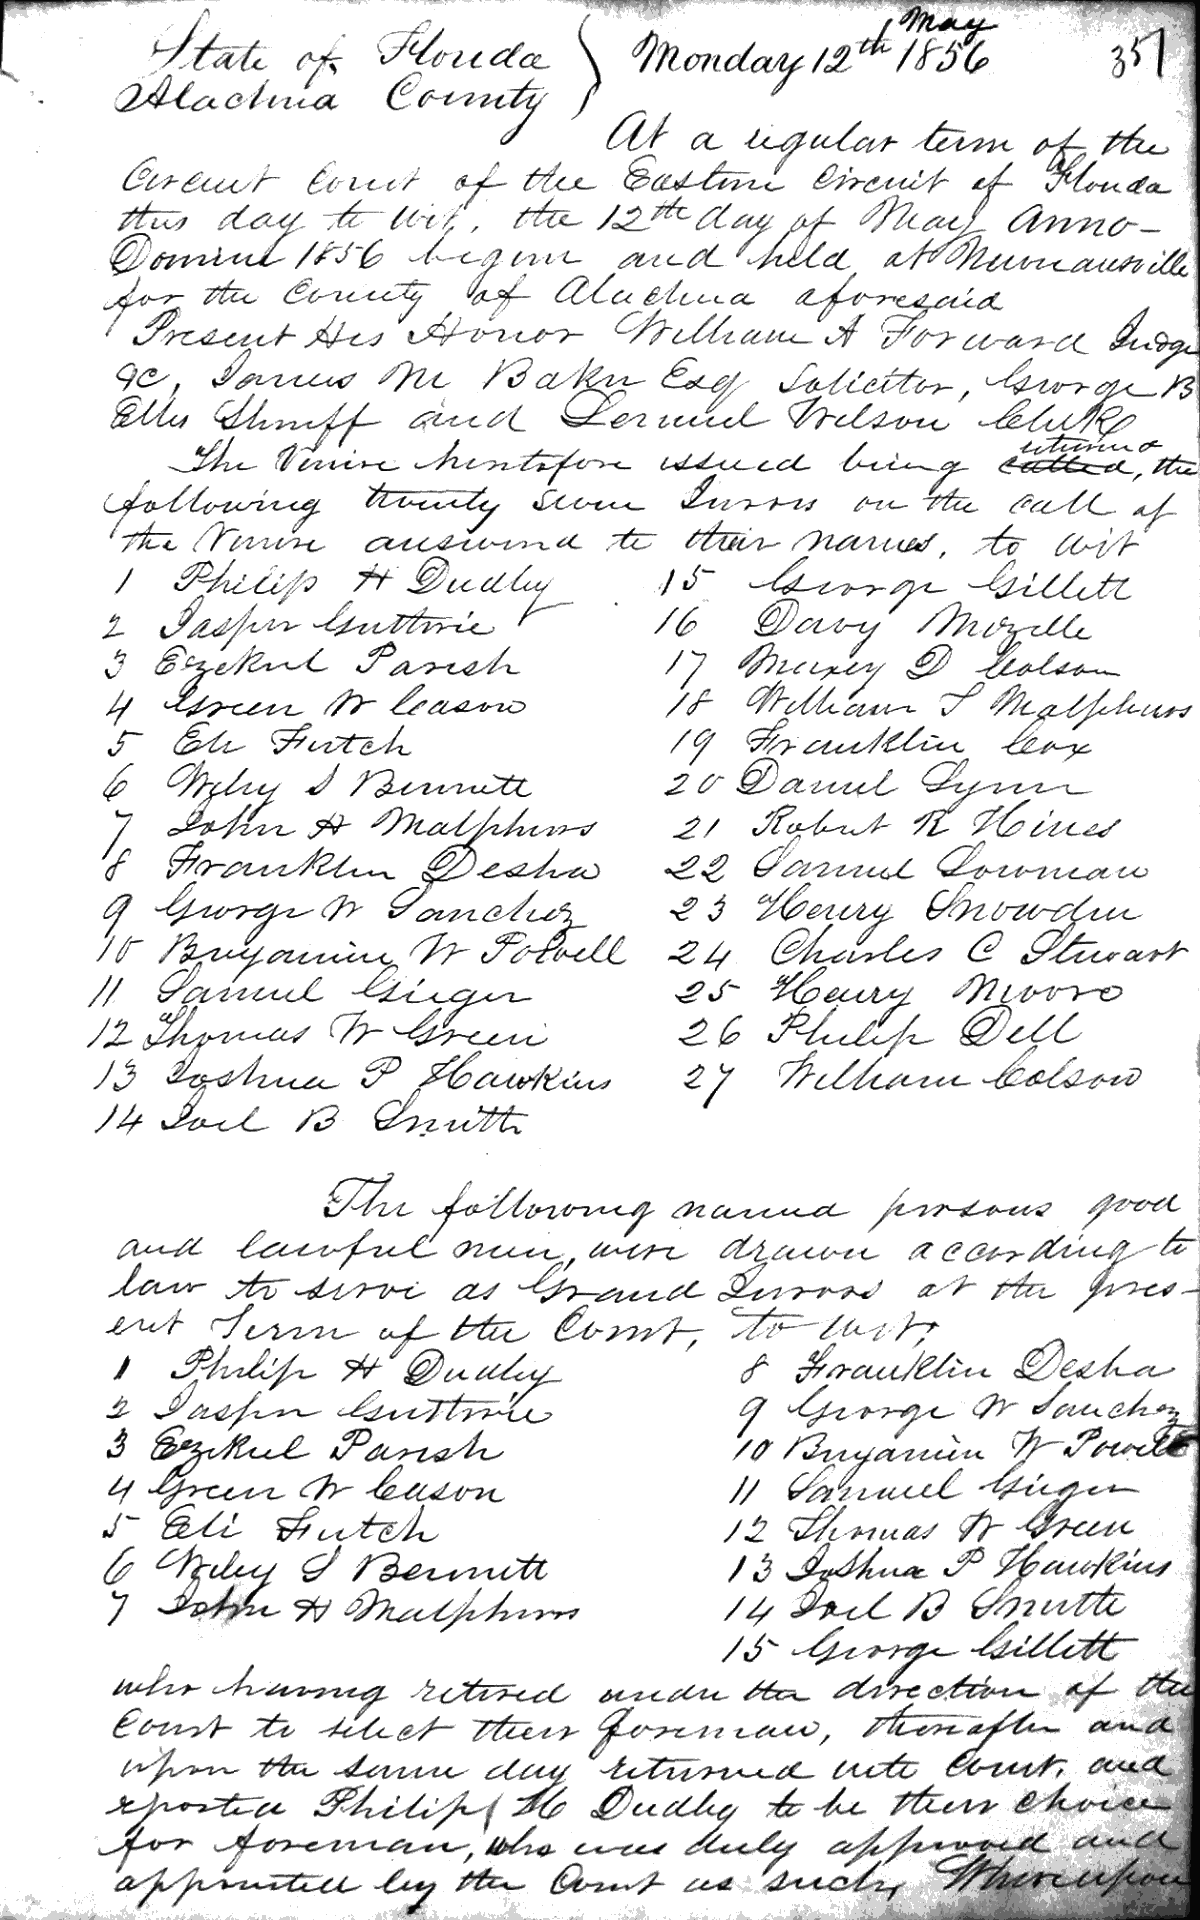 State of Florida } Monday 12th May 1856 357
Alachua County }
At a regular term of the
Circuit Court of the Eastern Circuit of Florida
this day to wit, the 12th day of May Anno-
Domini 1856 begun and held at Newnansville
for the County of Alachua aforesaid
Present His Honor William A Forward Judge
&c, James M Baker Esq Solicitor, George B
Ellis Sheriff and Lemuel Wilson Clerk
The Venire heretofore issued being called returned, the
following twenty seven Jurors on the call of
the Venire answered to their names, to wit
1 Philip H Dudley
2 Jasper Guthrie
3 Ezekiel Parish
4 Green W Cason
5 Eli Futch
6 Wiley S Bennett
7 John H Malphurs
8 Franklin Desha
9 George W Sanchez
10 Benjamin W Powell
11 Samuel Gieger
12 Thomas W Green
13 Joshua P Hawkins
14 Joel B Smith
15 George Gillett
16 Davy Mizelle
17 Maxey D Colson
18 William S Malphurs
19 Franklin Cox
20 Daniel Lynn
21 Robert R Hines
22 Samuel Sowman
23 Henry Snowden
24 Charles C Stewart
25 Henry Moore
26 Philip Dell
27 William Colson
The following named persons good
and lawful men, were drawn according to
law to serve as Grand Jurors at the pres-
ent Term of the Court, to wit;
1 Philip H Dudley
2 Jasper Guthrie
3 Ezekiel Parish
4 Green W Cason
5 Eli Futch
6 Wiley S Bennett
7 John H Malphurs
8 Franklin Desha
9 George W Sanchez
10 Benjamin W Powell
11 Samuel Gieger
12 Thomas W Green
13 Joshua P Hawkins
14 Joel B Smith
15 George Gillett
who having retired under the direction of the
Court to select their foreman, thereafter and
upon the same day returned into Court, and
reported Philip H Dudley to be their choice
for foreman, who was duly approved and
appointed by the Court as such, Whereupon